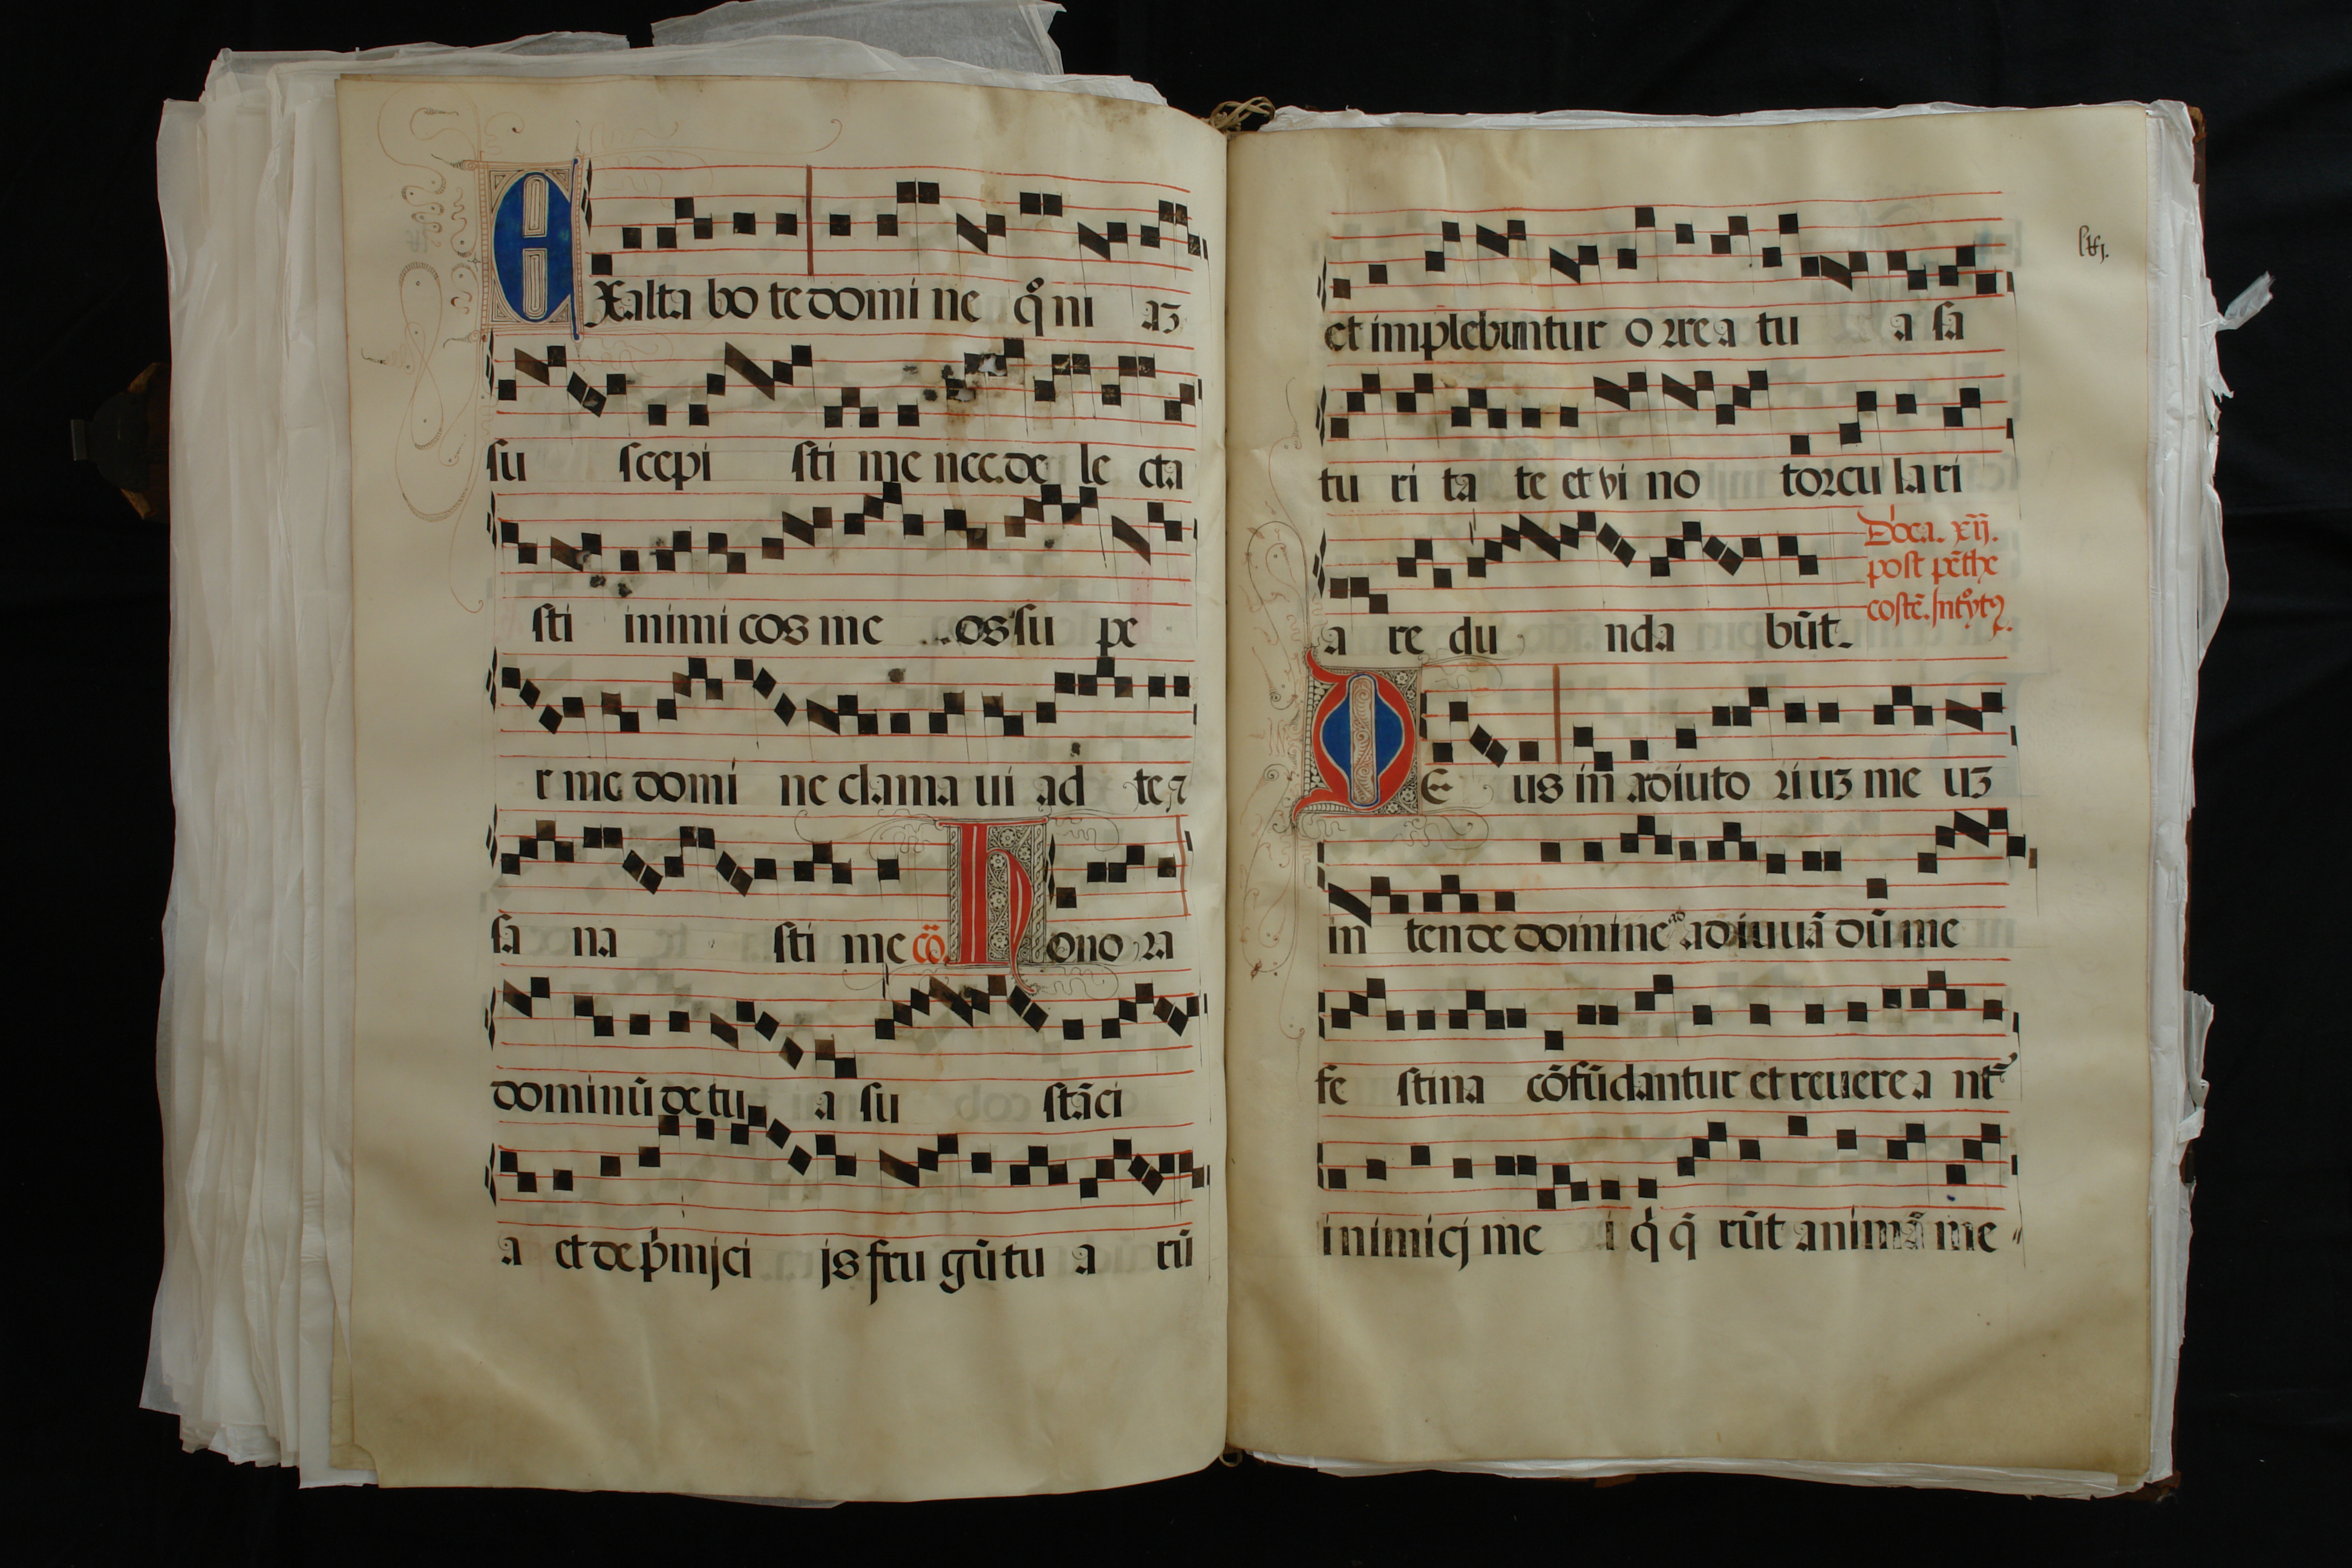 EXalta bo te domi ne qͦ ni aʒ
su scepi sti me nec de le cta
sti inimi cos me os su pe
r me domi ne clama ui ad te ⁊
sa na sti me cō. Hono ra
dominū de tu a su stāci
a et de p̍mjci js fru gū tu a rū
lxj.
et implebuntur o rrea tu a sa
tu ri ta te et vi no torcu lari
a re du nda būt.
Dōca. xij.
post pēthe
costē. Intͦytꝯ.
DE us in adiuto ri uʒ me uʒ
in tende domine ad adiuuā dū me
fe stina cōfūdantur et reuere a nt᷑
inimicj me i q̍ q̄ rūt animā me